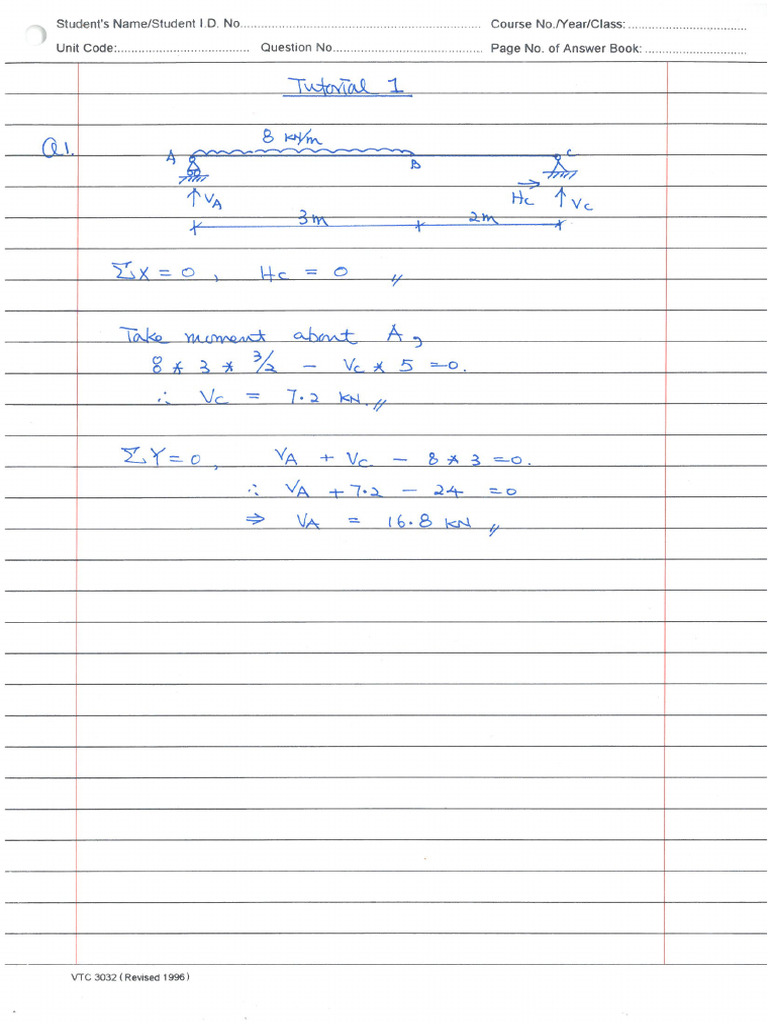 Student's Name/Student I.D. No.......................................................... Course No./Year/Class: ..............................
Unit Code:................................. Question No...................................... Page No. of Answer Book: ..........................
Tutorial 1
Q1.
8 KN/m
A B C
VA Hc Vc
3m 2m
ΣX = 0 , Hc = 0 //
Take moment about A,
8 * 3 * 3/2 - Vc * 5 = 0.
∴ Vc = 7.2 KN.//
ΣY = 0 , VA + Vc - 8 * 3 = 0.
∴ VA + 7.2 - 24 = 0
⇒ VA = 16.8 KN //
VTC 3032 (Revised 1996)